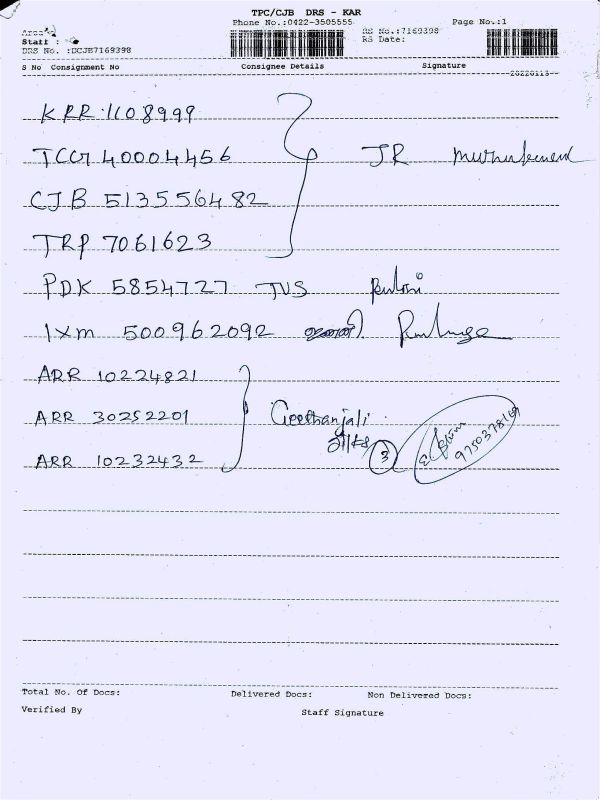 TPC/CJB DRS - KAR
Phone No.:0422-3505555 Page No.:1
Staff :
DRS No. :DCJB7169398
RS No.:7169398
RS Date:
S No Consignment No Consignee Details Signature
20220113
KRR 1108999
TCG 40004456 JR
CJB 513556482
TRP 7061623
PDK 5854727 TVS
IXM 500962092
ARR 10224821
ARR 30252201 Geethanjali
ARR 10232432 3
Total No. Of Docs: Delivered Docs: Non Delivered Docs:
Verified By Staff Signature